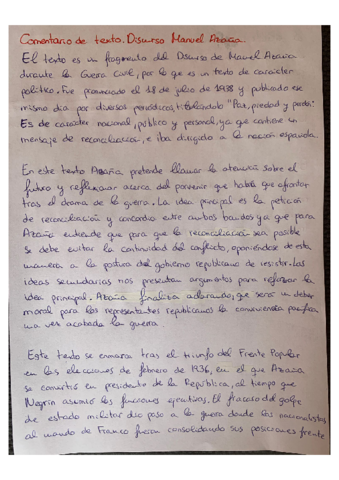 Comentario de texto. Discurso Manuel Azaña.
El texto es un fragmento del Discurso de Manuel Azaña
durante la Guerra Civil, por lo que es un texto de carácter
político. Fue pronunciado el 18 de julio de 1938 y publicado ese
mismo día por diversos periódicos, titulándolo "Paz, piedad y perdón".
Es de carácter nacional, público y personal, ya que contiene un
mensaje de reconciliación, e iba dirigido a la nación española.
En este texto Azaña, pretende llamar la atención sobre el
futuro y reflexionar acerca del porvenir que habrá que afrontar
tras el drama de la guerra. La idea principal es la petición
de reconciliación y concordia entre ambos bandos ya que para
Azaña entiende que para que la reconciliación sea posible
se debe evitar la continuidad del conflicto, oponiéndose de esta
manera a la postura del gobierno republicano de resistir. Las
ideas secundarias nos presentan argumentos para reforzar la
idea principal. Azaña finaliza aclarando, que será un deber
moral para los representantes republicanos la convivencia pacífica
una vez acabada la guerra.
Este texto se enmarca tras el triunfo del Frente Popular
en las elecciones de febrero de 1936, en el que Azaña
se convirtió en presidente de la República, al tiempo que
Negrín asumió las funciones ejecutivas. El fracaso del golpe
de estado militar dio paso a la guerra donde los nacionalistas
al mando de Franco fueron consolidando sus posiciones frente